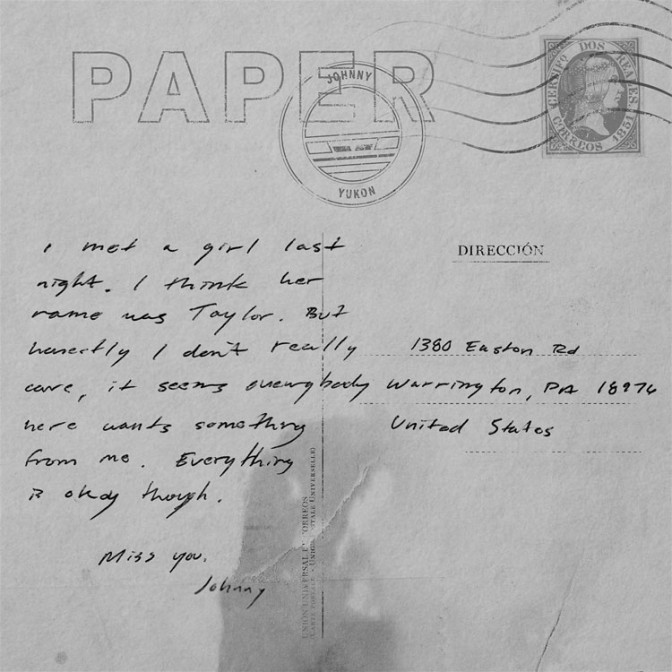 PAPER
JOHNNY
YUKON
CERTIFDO DOS REALES
CORREOS 1851
DIRECCIÓN
i met a girl last
night. I think her
name was Taylor. But
honestly I don't really
care, it seems everybody
here wants something
from me. Everything
is okay though.
Miss you.
Johnny
1380 Easton Rd
Warrington, PA 18976
United States